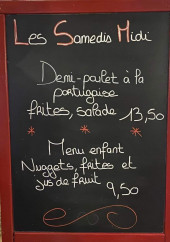 Les Samedis Midi
Demi-poulet à la
portugaise
frites, salade 13,50
Menu enfant
Nuggets, frites et
jus de fruit
9,50